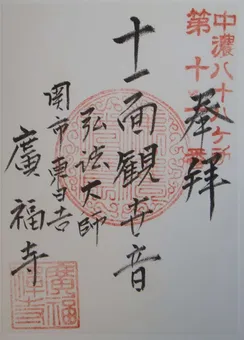 中濃八十八ヶ所
第十
奉拝
十一面観世音
弘法大師
関市
廣福寺
廣福